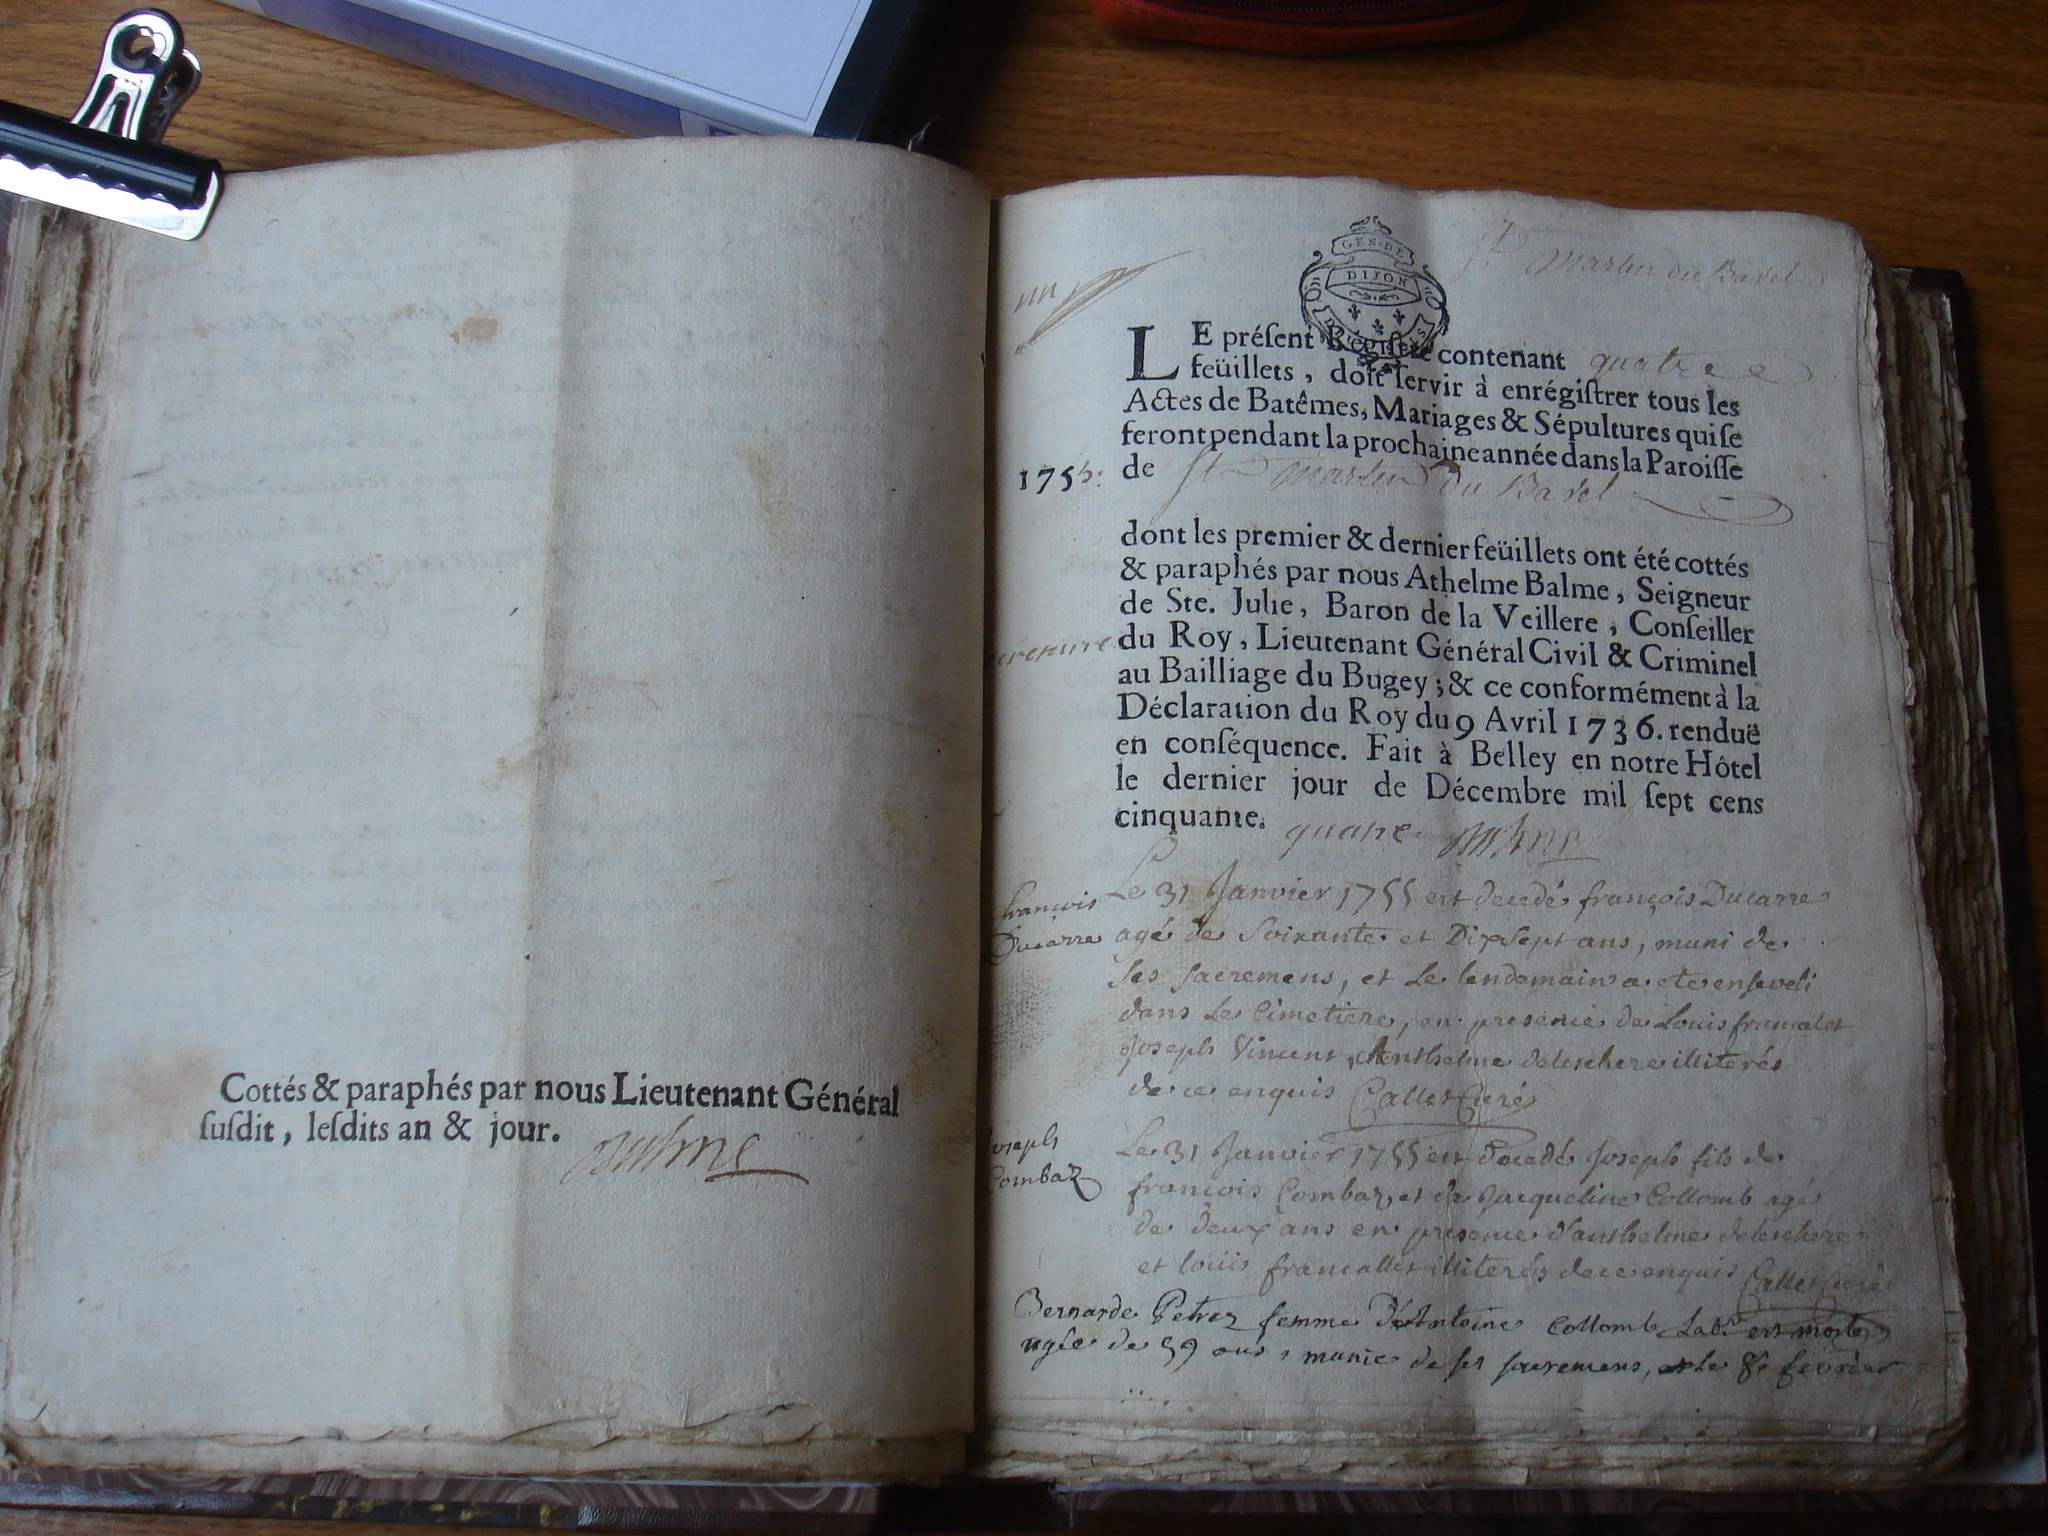 Cottés & paraphés par nous Lieutenant Général
ſuſdit, leſdits an & jour.
Balme
un
GEN·DE
DIJON
St Martin du Bavel
LE préſent Régiſtre contenant quatre
feüillets, doit ſervir à enrégiſtrer tous les
Actes de Batêmes, Mariages & Sépultures qui ſe
feront pendant la prochaine année dans la Paroiſſe
1755. de St Martin du Bavel
dont les premier & dernier feüillets ont été cottés
& paraphés par nous Athelme Balme, Seigneur
de Ste. Julie, Baron de la Veillere, Conſeiller
du Roy, Lieutenant Général Civil & Criminel
au Bailliage du Bugey; & ce conformément à la
Déclaration du Roy du 9 Avril 1736. renduë
en conſéquence. Fait à Belley en notre Hôtel
le dernier jour de Décembre mil ſept cens
cinquante. quatre. Balme
françois
Ducarre
Le 31 Janvier 1755 est decedé françois Ducarre
agé de Soixante et Dixsept ans, muni de
ses sacremens, et le lendemain a ete enseveli
dans le Cimetiere, en presence de Louis francalet
Joseph Vincent, Anthelme deleschere illiterés
de ce enquis Callet Curé
Joseph
Combaz
Le 31 Janvier 1755 est decedé Joseph fils de
françois Combaz, et de Jacqueline Collomb agé
de deux ans en presence d'anthelme deleschere
et loüis francallet illiterés de ce enquis Callet Curé
Bernarde Petraz femme d'Antoine Collomb Labr. est morte
agée de 59 ans, munie de ses sacremens, le 8e fevrier